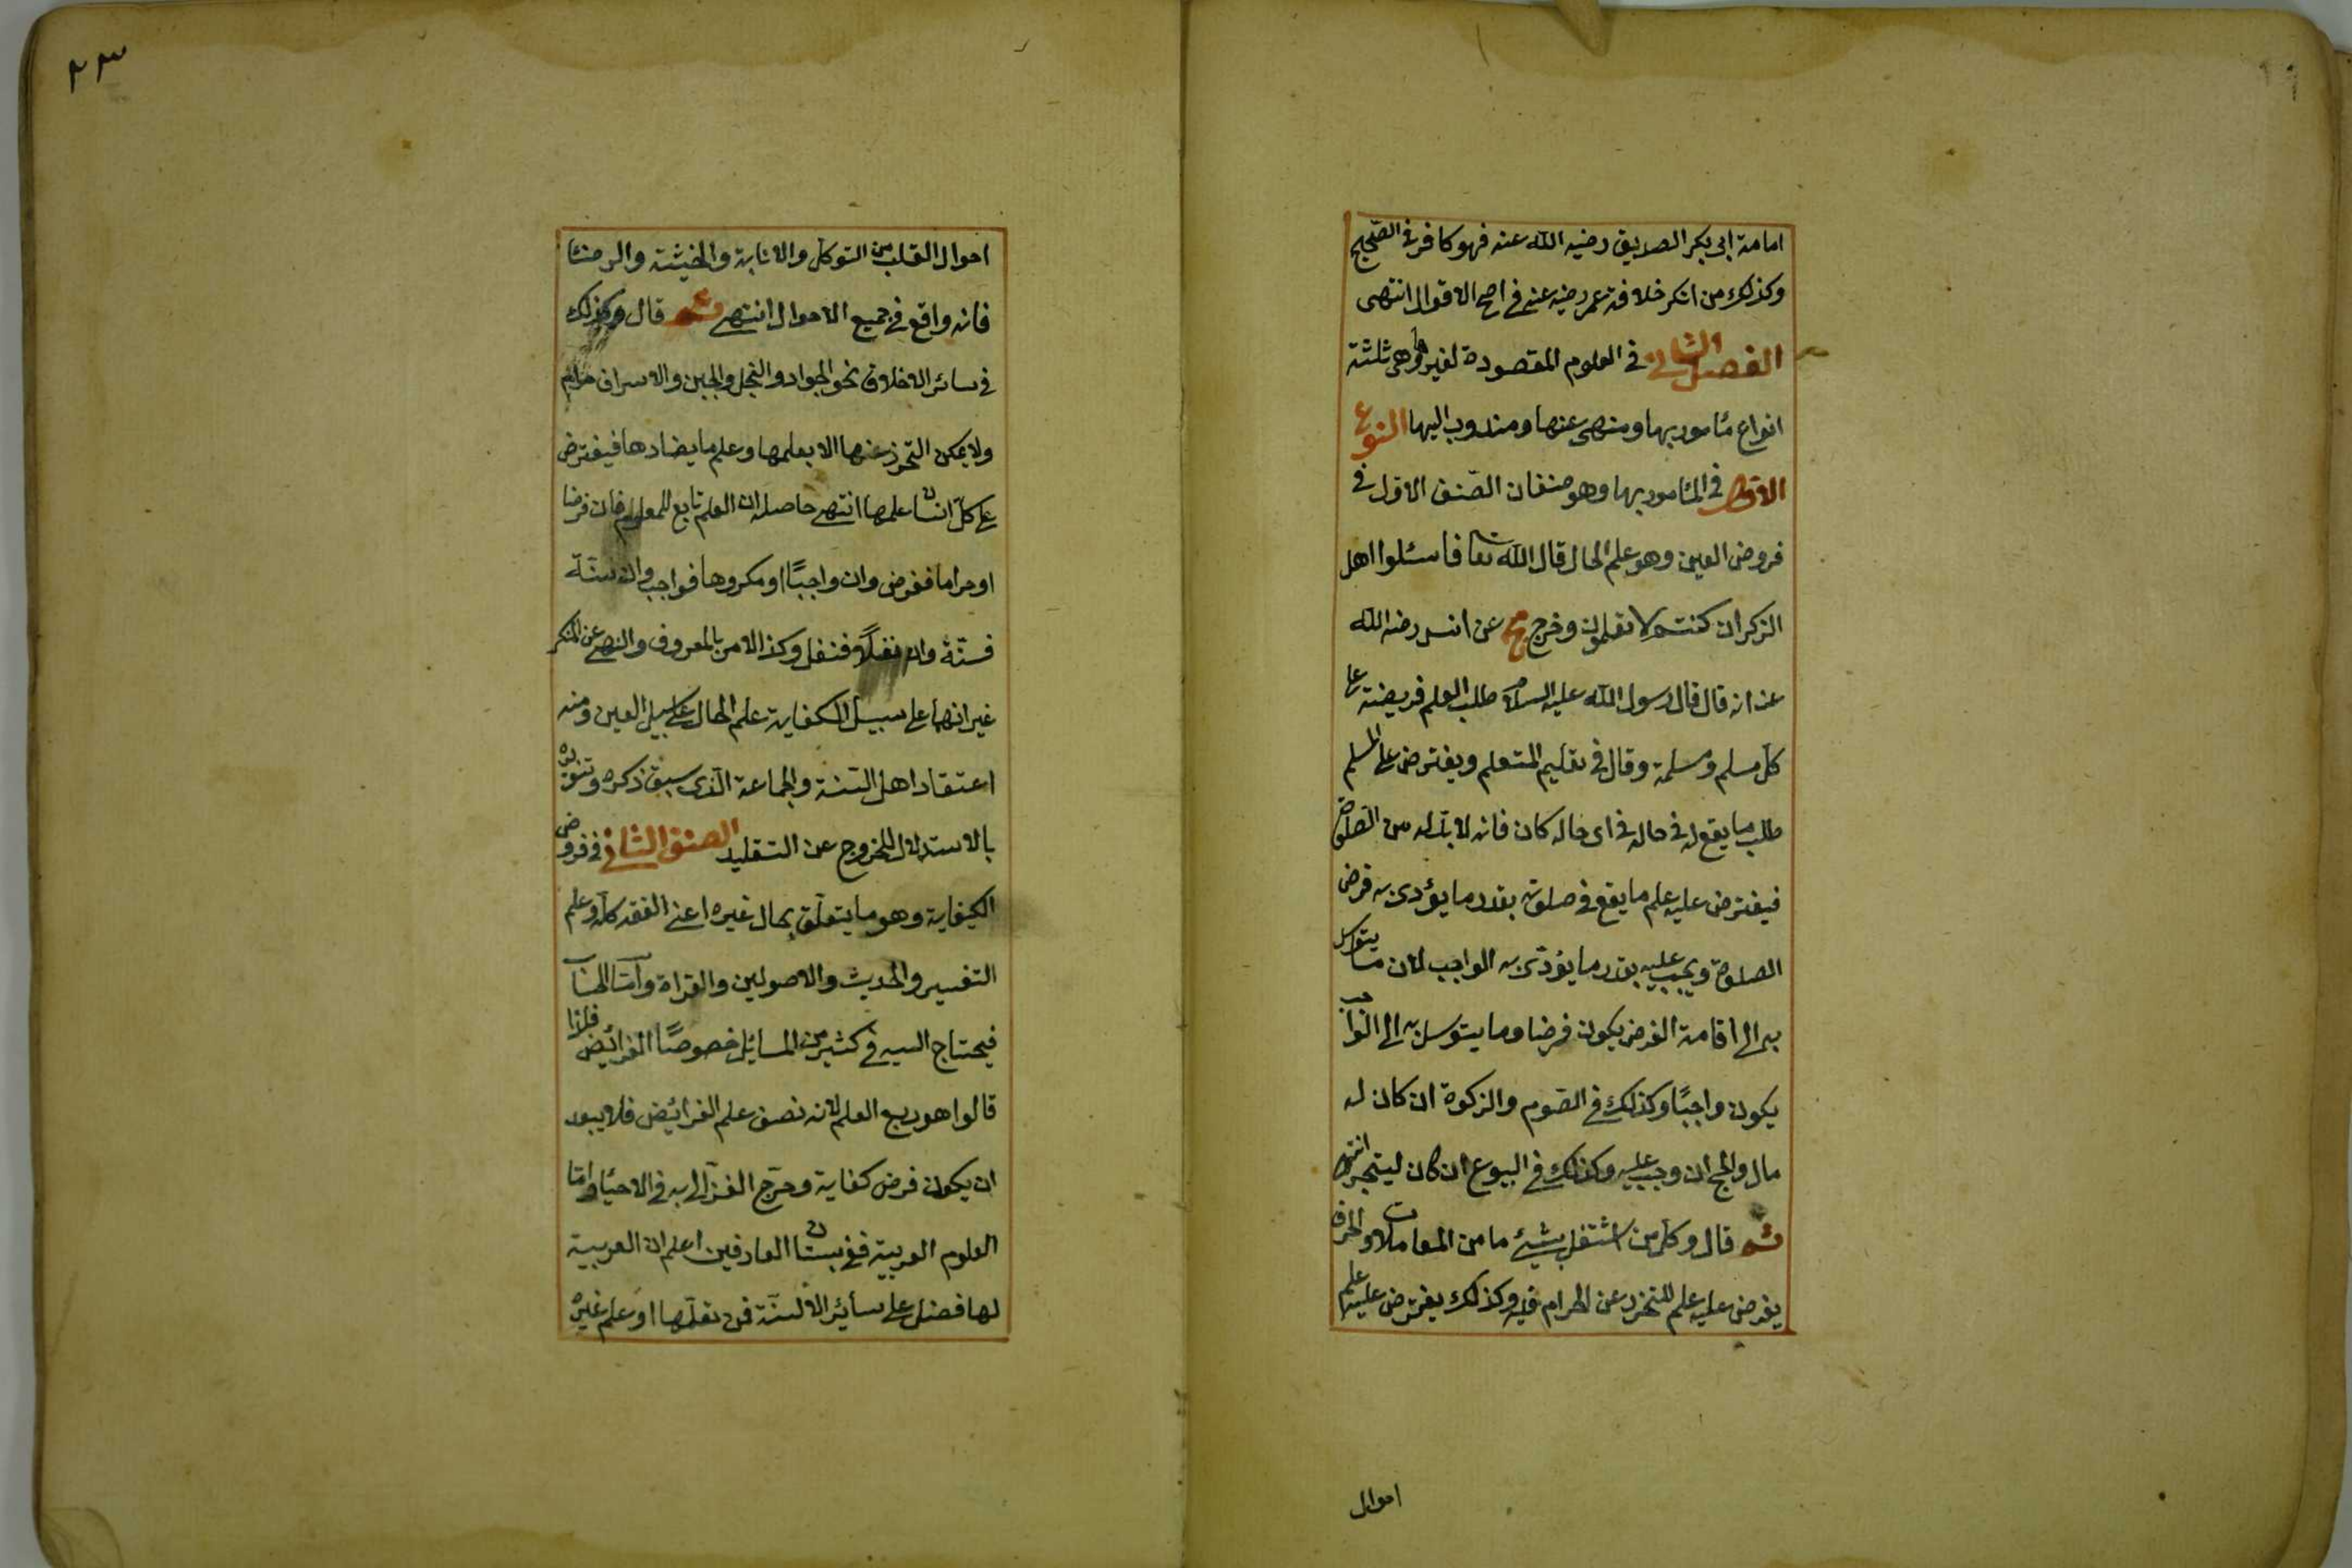 امامة ابى بكر الصديق رضيه الله عنه فهو كافر فى الصّحيح
وكذلك من انكر خلافة عمر رضيه عنه فى اصح الاقوال انتهى
الفصل الثانى فى العلوم المقصودة لغيرها وهى ثلثة
انواع مأمور بها ومنهى عنها ومندوب اليها النوع
الاول فى المأمور بها وهو صنفان الصّنف الاول فى
فروض العين وهو علم الحال قال الله تعا فاسئلوا اهل
الذكر ان كنتم لا تعلمون وخرج مج عن انس رضيه الله
عنه انه قال قال رسول الله عليه السلام طلب العلم فريضة على
كل مسلم ومسلمة وقال فى تعليم المتعلم ويفترض على المسلم
طلب ما يقع له فى حاله فى اى حاله كان فانه لا بدّ له من الصّلوة
فيفترض عليه علم ما يقع فى صلوته بقدر ما يؤدى به فرض
الصلوة ويجب عليه بقدر ما يؤدّى به الواجب لان ما يتوسل
به الى اقامة الفرض يكون فرضا وما يتوسل به الى الواجب
يكون واجبًا وكذلك فى الصّوم والزكوة ان كان له
مال والحج ان وجب عليه وكذلك فى البيوع ان كان ليتجر انتهى
ثم قال وكل من اشتغل بشئ ما من المعاملات والحرف
يفرض عليه علم التحرز عن الحرام فيه وكذلك يفترض عليه علم
احوال
٢٣
احوال القلب من التوكل والانابة والخشية والرضا
فانه واقع فى جميع الاحوال انتهى ثم قال وكذلك
فى سائر الاخلاق نحو الجواد والبخل والجبن والاسراف حرام
ولا يمكن التحرز عنها الا بعلمها وعلم ما يضادها فيفترض
على كلّ انسان علمها انتهى حاصله ان العلم تابع للمعلوم فان فرضا
او حراما ففرض وان واجبًا او مكروها فواجب وان سنّة
فسنّة وان نفلًا فنفل وكذا الامر بالمعروف والنهى عن المنكر
غير انهما على سبيل الكفاية علم الحال على سبيل العين ومنه
اعتقاد اهل السّنة والجماعة الّذى سبق ذكره وتنوّره
بالاستدلال للخروج عن التقليد الصنف الثانى فى فروض
الكفاية وهو ما يتعلّق بحال غيره اعنى الفقه كلّه وعلم
التفسير والحديث والاصولين والقراة وامّا الحساب
فيحتاج اليه فى كثير من المسائل خصوصًا الفرائض فلذا
قالوا هو ربع العلم لانه نصف علم الفرائض فلا يبعد
ان يكون فرض كفاية وصّرح الغزّالى به فى الاحياء وامّا
العلوم العربية ففى بستان العارفين اعلم ان العربية
لها فضل على سائر الالسنة فمن تعلّمها او علم غيره